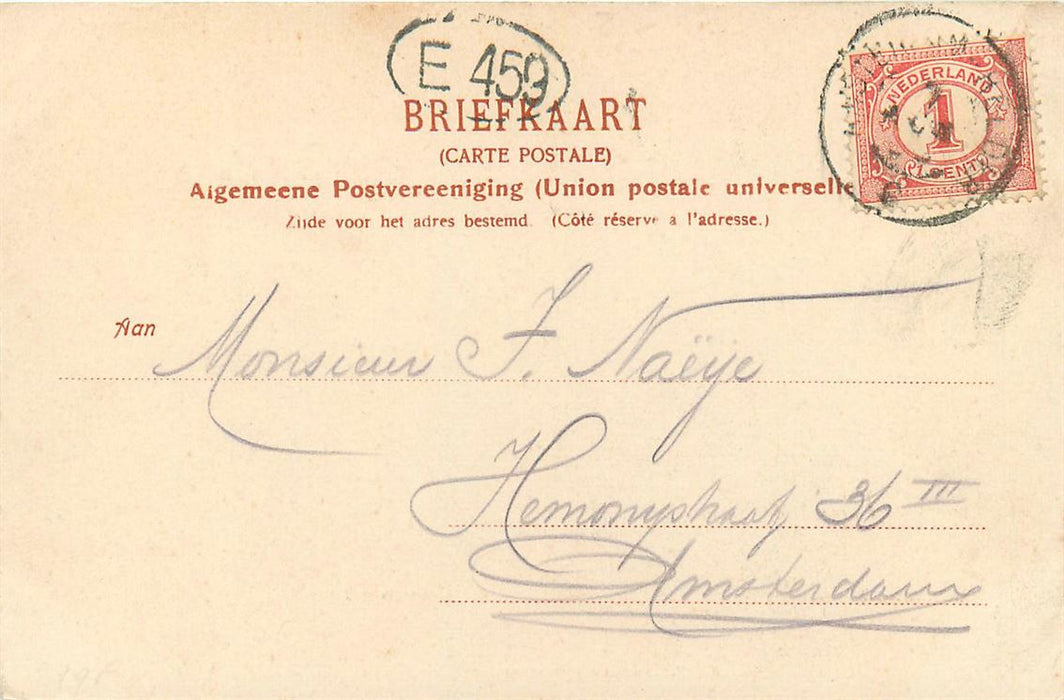 E 459
BRIEFKAART
(CARTE POSTALE)
Algemeene Postvereeniging (Union postale universelle
Zijde voor het adres bestemd. (Côté réservé a l'adresse.)
NEDERLAND
1
CENT
Aan Monsieur F. Naëye
Hemonystraat 36 III
Amsterdam